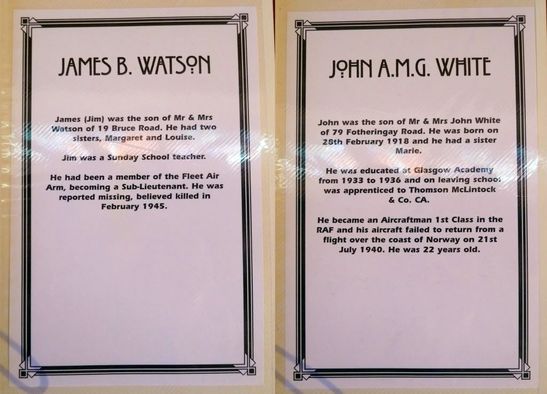 JAMES B. WATSON
James (Jim) was the son of Mr & Mrs
Watson of 19 Bruce Road. He had two
sisters, Margaret and Louise.
Jim was a Sunday School teacher.
He had been a member of the Fleet Air
Arm, becoming a Sub-Lieutenant. He was
reported missing, believed killed in
February 1945.
JOHN A.M.G. WHITE
John was the son of Mr & Mrs John White
of 79 Fotheringay Road. He was born on
28th February 1918 and he had a sister
Marie.
He was educated at Glasgow Academy
from 1933 to 1936 and on leaving school
was apprenticed to Thomson McLintock
& Co. CA.
He became an Aircraftman 1st Class in the
RAF and his aircraft failed to return from a
flight over the coast of Norway on 21st
July 1940. He was 22 years old.